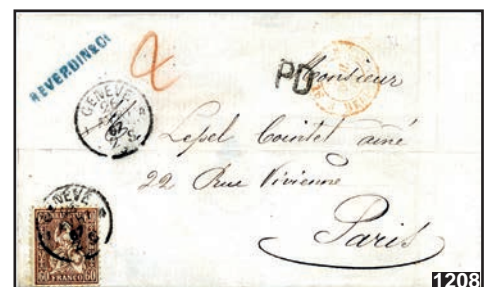 REVERDIN & Cie
GENEVE
PD
Monsieur
Lepel Cointet aîné
22 Rue Vivienne
Paris
GENEVE
60 FRANCO 60
1208